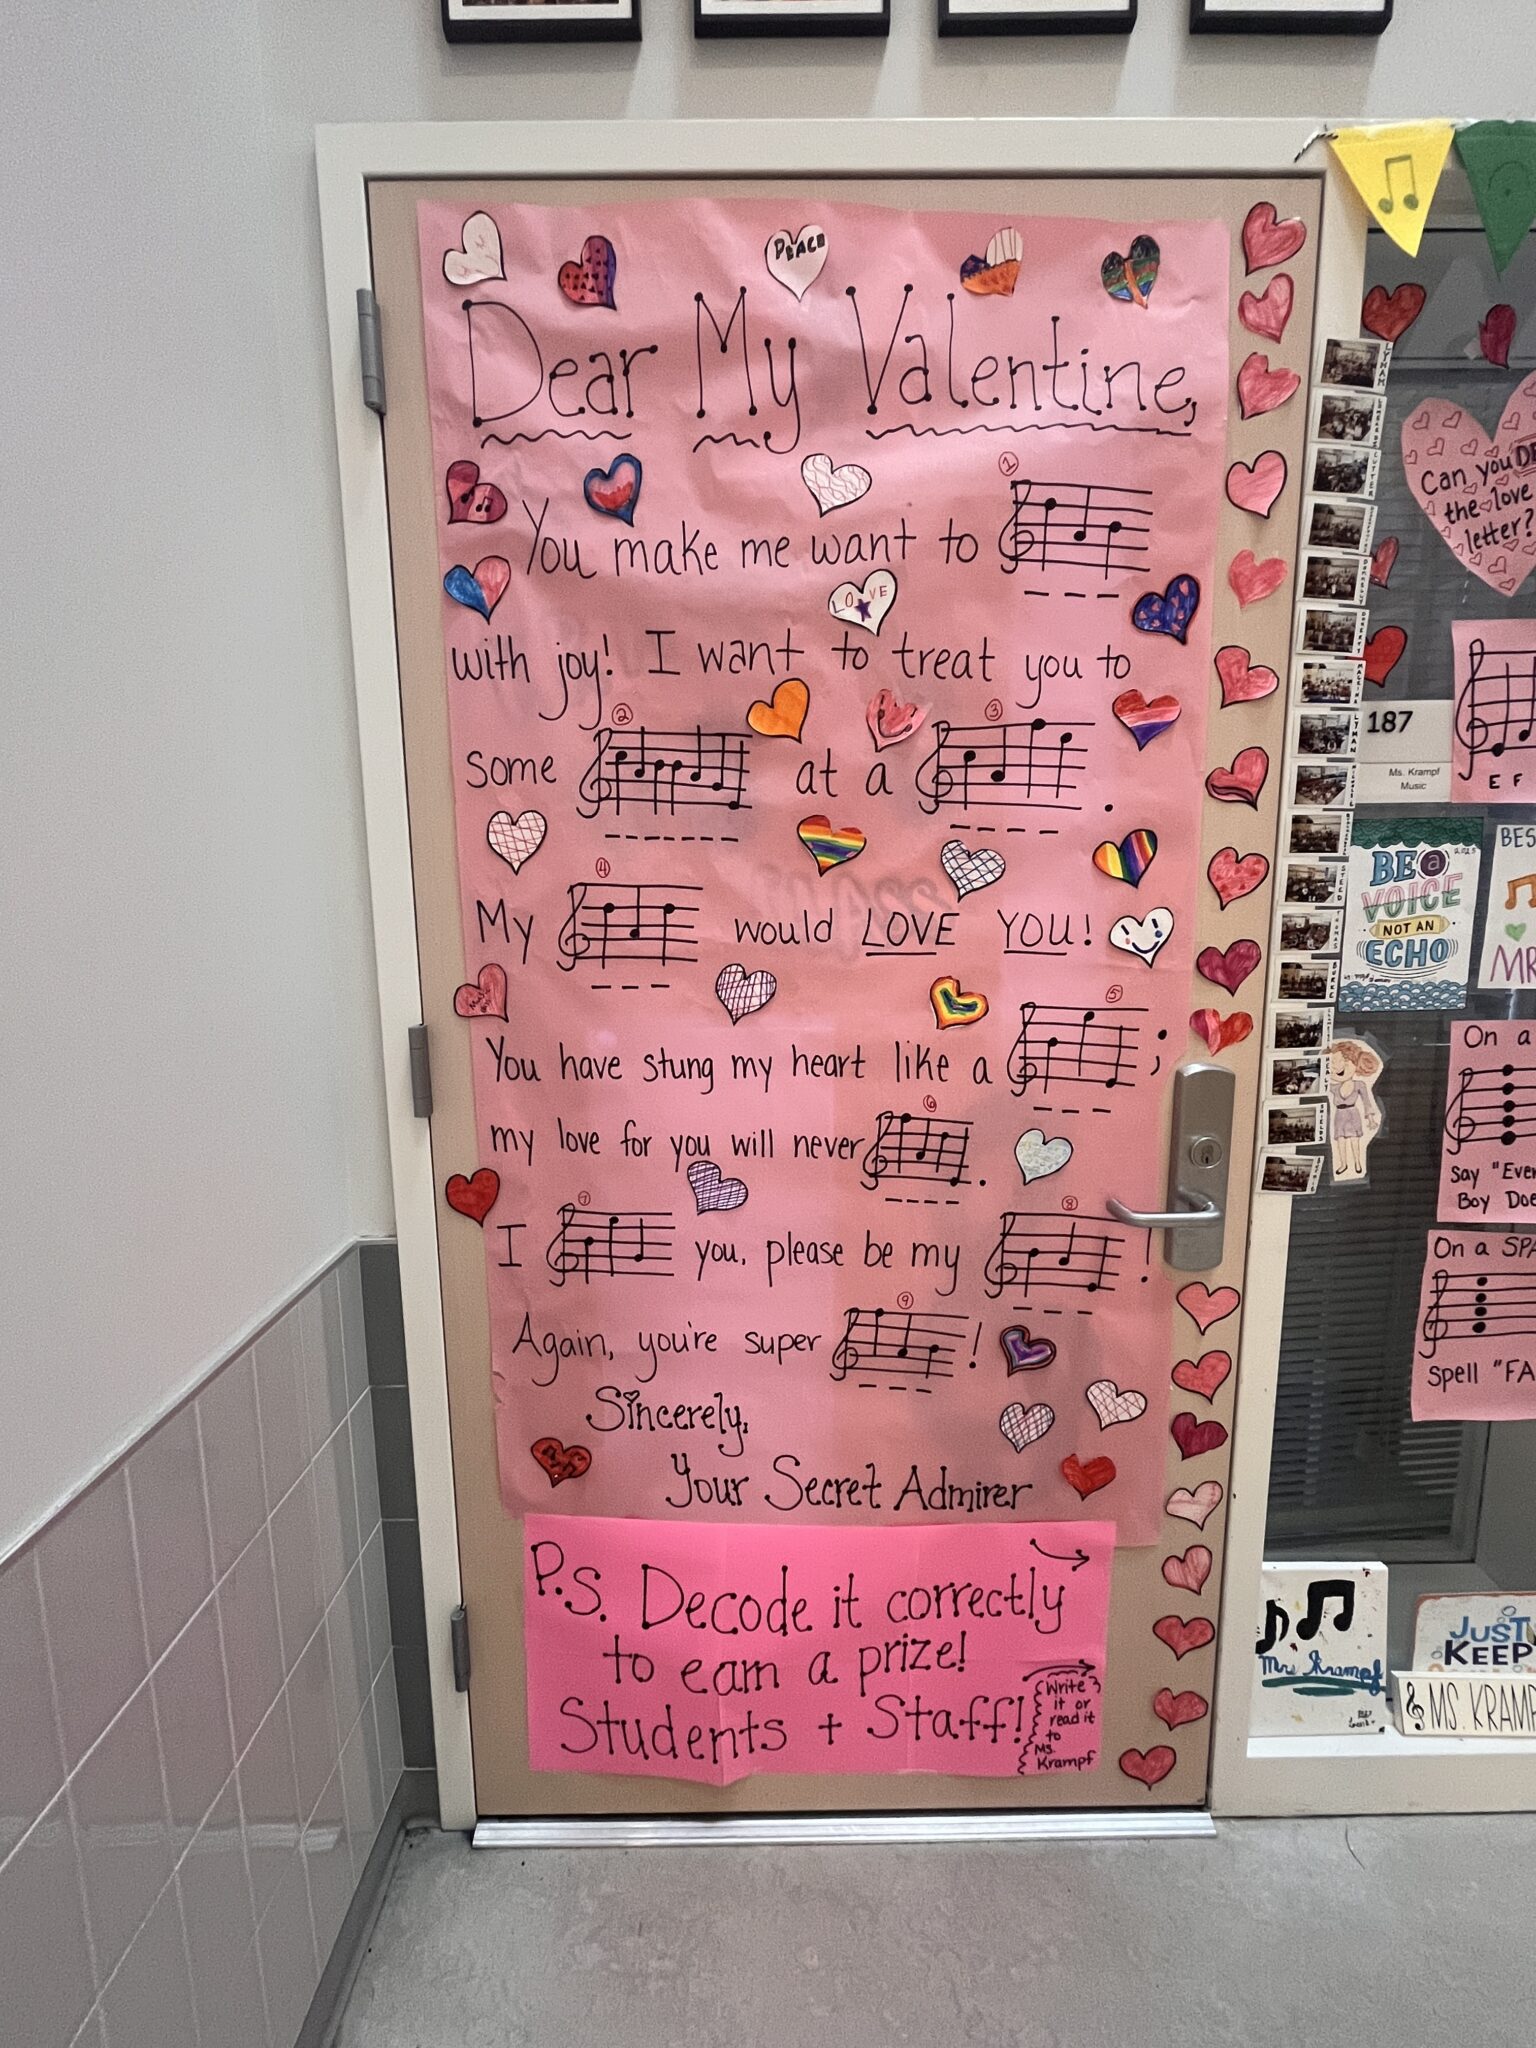 PEACE
Dear My Valentine,
1
You make me want to _ _ _
LOVE
with joy! I want to treat you to
2
3
some _ _ _ _ _ _ _ at a _ _ _ _ .
4
My _ _ _ would LOVE YOU!
5
You have stung my heart like a _ _ _ ;
6
my love for you will never _ _ _ _ .
7
8
I you, please be my _ _ _ !
9
Again, you're super _ _ _ !
Sincerely,
Your Secret Admirer
P.S. Decode it correctly
to earn a prize!
Students + Staff!
Write
it or
read it
to
Ms.
Krampf
Can you DE
the love
letter?
187
Ms. Krampf
Music
E F
BE a
VOICE
NOT AN
ECHO
BES
MR
On a
Say "Ever
Boy Doe
On a SPA
Spell "FA
Mrs Krampf
JUST
KEEP
MS. KRAMP